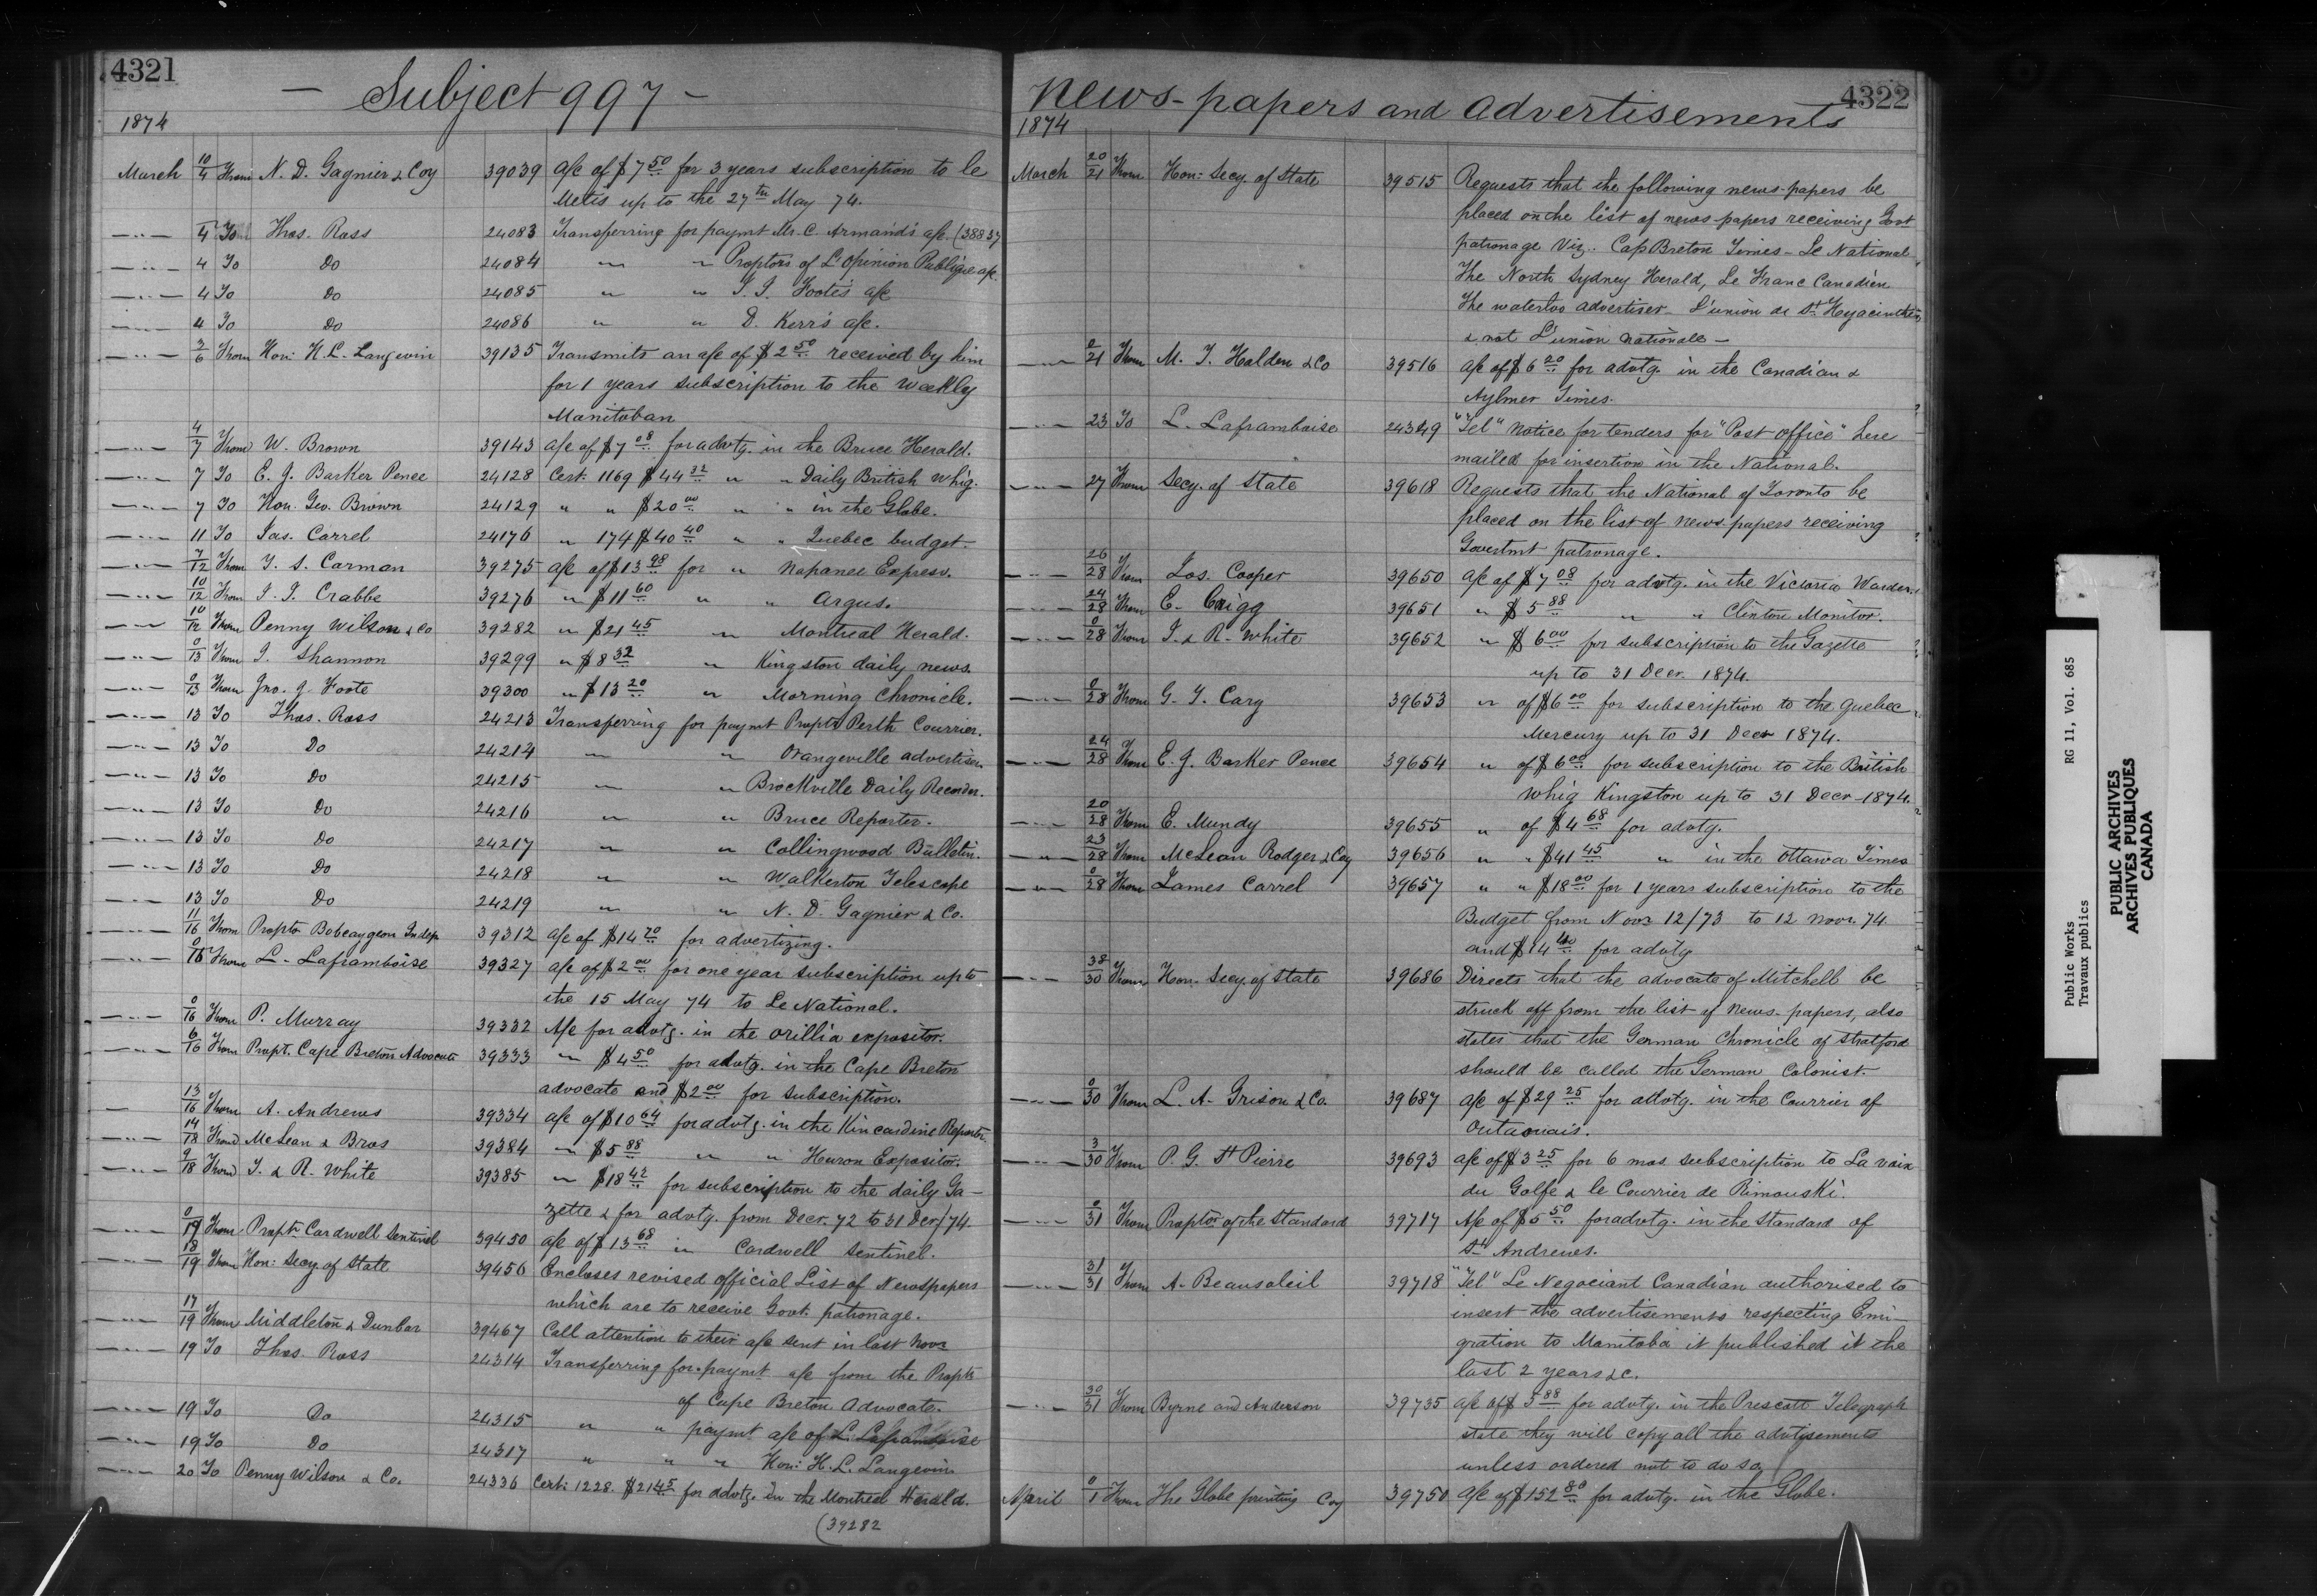 4321
— Subject 997 —
1874
March 10/4 From N. D. Gagnier & Coy 39039 a/c of $7 50 for 3 years subscription to le
Metis up to the 27th May 74.
—"— 4 To Thos. Ross 24083 Transferring for paymt Mr. C. Armand's a/c. (38837
—"— 4 To Do 24084 " " Proptors of L'Opinion Publique a/c.
—"— 4 To Do 24085 " " J. J. Foote's a/c
—"— 4 To Do 24086 " " D. Kerr's a/c.
—"— 3/6 From Hon: H. L. Langevin 39135 Transmits an a/c of $2 50 received by him
for 1 years subscription to the Weekly
Manitoban
—"— 4/7 From W. Brown 39143 a/c of $7 08 for advtg. in the Bruce Herald.
—"— 7 To E. J. Barker Pence 24128 Cert: 1169 $44 32 " " Daily British Whig.
—"— 7 To Hon. Geo. Brown 24129 " " $20 00 " " in the Globe.
—"— 11 To Jas. Carrel 24176 " 174 $40 40 " " Quebec budget.
—"— 7/12 From T. S. Carman 39275 a/c of $13 98 for " Napanee Express.
—"— 10/12 From J. J. Crabbe 39276 " $11 60 " " Argus.
—"— 10/12 From Penny Wilson & Co 39282 " $21 45 " Montreal Herald.
—"— 0/13 From J. Shannon 39299 " $8 32 " Kingston daily news.
—"— 0/13 From Jno. J. Foote 39300 " $13 20 " Morning Chronicle.
—"— 13 To Thos. Ross 24213 Transferring for paymt Proptr Perth Courrier.
—"— 13 To Do 24214 " " Orangeville advertiser.
—"— 13 To Do 24215 " " Brockville Daily Recorder.
—"— 13 To Do 24216 " " Bruce Reporter.
—"— 13 To Do 24217 " " Collingwood Bulletin.
—"— 13 To Do 24218 " " Walkerton Telescope
—"— 13 To Do 24219 " " N. D. Gagnier & Co.
—"— 11/16 From Proptr Bobcaygeon Indep. 39312 a/c of $14 70 for advertizing.
—"— 0/16 From L. Laframboise 39327 a/c of $2 00 for one year subscription up to
the 15 May 74 to Le National.
—"— 0/16 From P. Murray 39332 A/c for advtg. in the Orillia expositor.
—"— 6/16 From Propt. Cape Breton Advocate 39333 " $4 50 for advtg. in the Cape Breton
advocate and $2 00 for subscription.
— 13/16 From A. Andrews 39334 a/c of $10 64 for advtg. in the Kincardine Reporter.
—"— 14/18 From McLean & Bros 39384 " $5 88 " " Huron Expositor.
—"— 9/18 From T. & R. White 39385 " $18 42 for subscription to the daily Ga-
zette & for advtg. from Decr. 72 to 31 Decr/74.
—"— 0/19 From Proptr Cardwell Sentinel 39450 a/c of $13 68 in Cardwell Sentinel.
—"— 18/19 From Hon: Secy. of State 39456 Encloses revised official List of Newspapers
which are to receive Govt. patronage.
—"— 17/19 From Middleton & Dunbar 39467 Call attention to their a/c sent in last Novr
—"— 19 To Thos. Ross 24314 Transferring for paymt a/c from the Proptr
of Cape Breton Advocate.
—"— 19 To Do 24315 " " paymt a/c of L. Laframboise
—"— 19 To Do 24317 " " " Hon: H. L. Langevin
—"— 20 To Penny Wilson & Co. 24336 Cert: 1228. $21 45 for advtg. in the Montreal Herald.
(39282
4322
News-papers and Advertisements
1874
March 20/21 From Hon: Secy. of State 39515 Requests that the following news-papers be
placed on the list of news papers receiving Govt
patronage Viz.. Cap Breton Times - Le National
The North Sydney Herald, Le Franc Canadien
The waterloo advertiser - L'union de St. Hyacinthe,
& not L'union Nationale —
—"— 0/21 From M. J. Halden & Co 39516 a/c of $6 20 for advtg. in the Canadian &
Aylmer Times.
—"— 23 To L. Laframboise 24349 "Tel" Notice for tenders for "Post office" here
mailed for insertion in the National.
—"— 27 From Secy. of State 39618 Requests that the National of Toronto be
placed on the list of news papers receiving
Govertmt patronage.
—"— 26/28 From Jos. Cooper 39650 a/c of $7 08 for advtg. in the Victoria Warder.
—"— 24/28 From E. Crigg 39651 " $5 88 " " Clinton Monitor.
—"— 0/28 From T. & R. White 39652 " $6 00 for subscription to the Gazette
up to 31 Decr 1874.
—"— 0/28 From G. T. Cary 39653 " of $6 00 for subscription to the Quebec
Mercury up to 31 Decr 1874.
—"— 24/28 From E. J. Barker Pence 39654 " of $6 00 for subscription to the British
Whig Kingston up to 31 Decr-1874.
—"— 20/28 From E. Mundy 39655 " of $4 68 for advtg.
—"— 23/28 From McLean Rodger & Coy 39656 " " $41 45 " in the Ottawa Times
—"— 0/28 From James Carrel 39657 " " $18 00 for 1 years subscription to the
Budget from Novr 12/73 to 12 Novr. 74
and $14 40 for advtg
—"— 38/30 From Hon. Secy. of State 39686 Directs that the advocate of Mitchell be
struck off from the list of news-papers, also
states that the German Chronicle of Stratford
should be called the German Colonist.
—"— 0/30 From L. A. Grison & Co. 39687 a/c of $29 25 for advtg. in the Courrier of
Outaouais.
—"— 3/30 From P. G. St Pierre 39693 a/c of $3 25 for 6 mos subscription to La voix
du Golfe & le Courrier de Rimouski.
—"— 0/31 From Proptor of the Standard 39717 A/c of $5 50 for advtg. in the Standard of
St Andrews.
—"— 31/31 From A. Beausoleil 39718 "Tel" Le Negociant Canadian authorised to
insert the advertisements respecting Emi-
gration to Manitoba it published it the
last 2 years &c.
—"— 30/31 From Byrne and Anderson 39735 a/c of $5 88 for advtg. in the Prescott Telegraph
state they will copy all the advtisements
unless ordered not to do so
April 0/1 From The Globe printing Coy 39750 a/c of $152 80 for advtg. in the Globe.
Public Works RG 11, Vol. 685
Travaux publics
PUBLIC ARCHIVES
ARCHIVES PUBLIQUES
CANADA